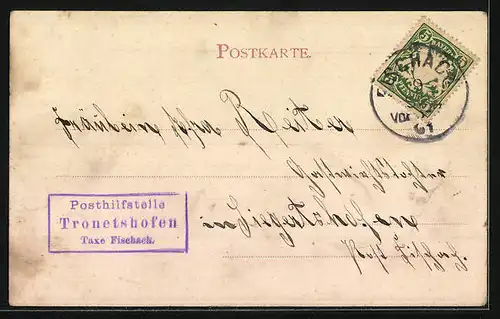 POSTKARTE.
BAYERN
FISCHACH
VOR
01
Fräulein
Reiter
in Siegertshofen
Post Fischach.
Posthilfstelle
Tronetshofen
Taxe Fischach.